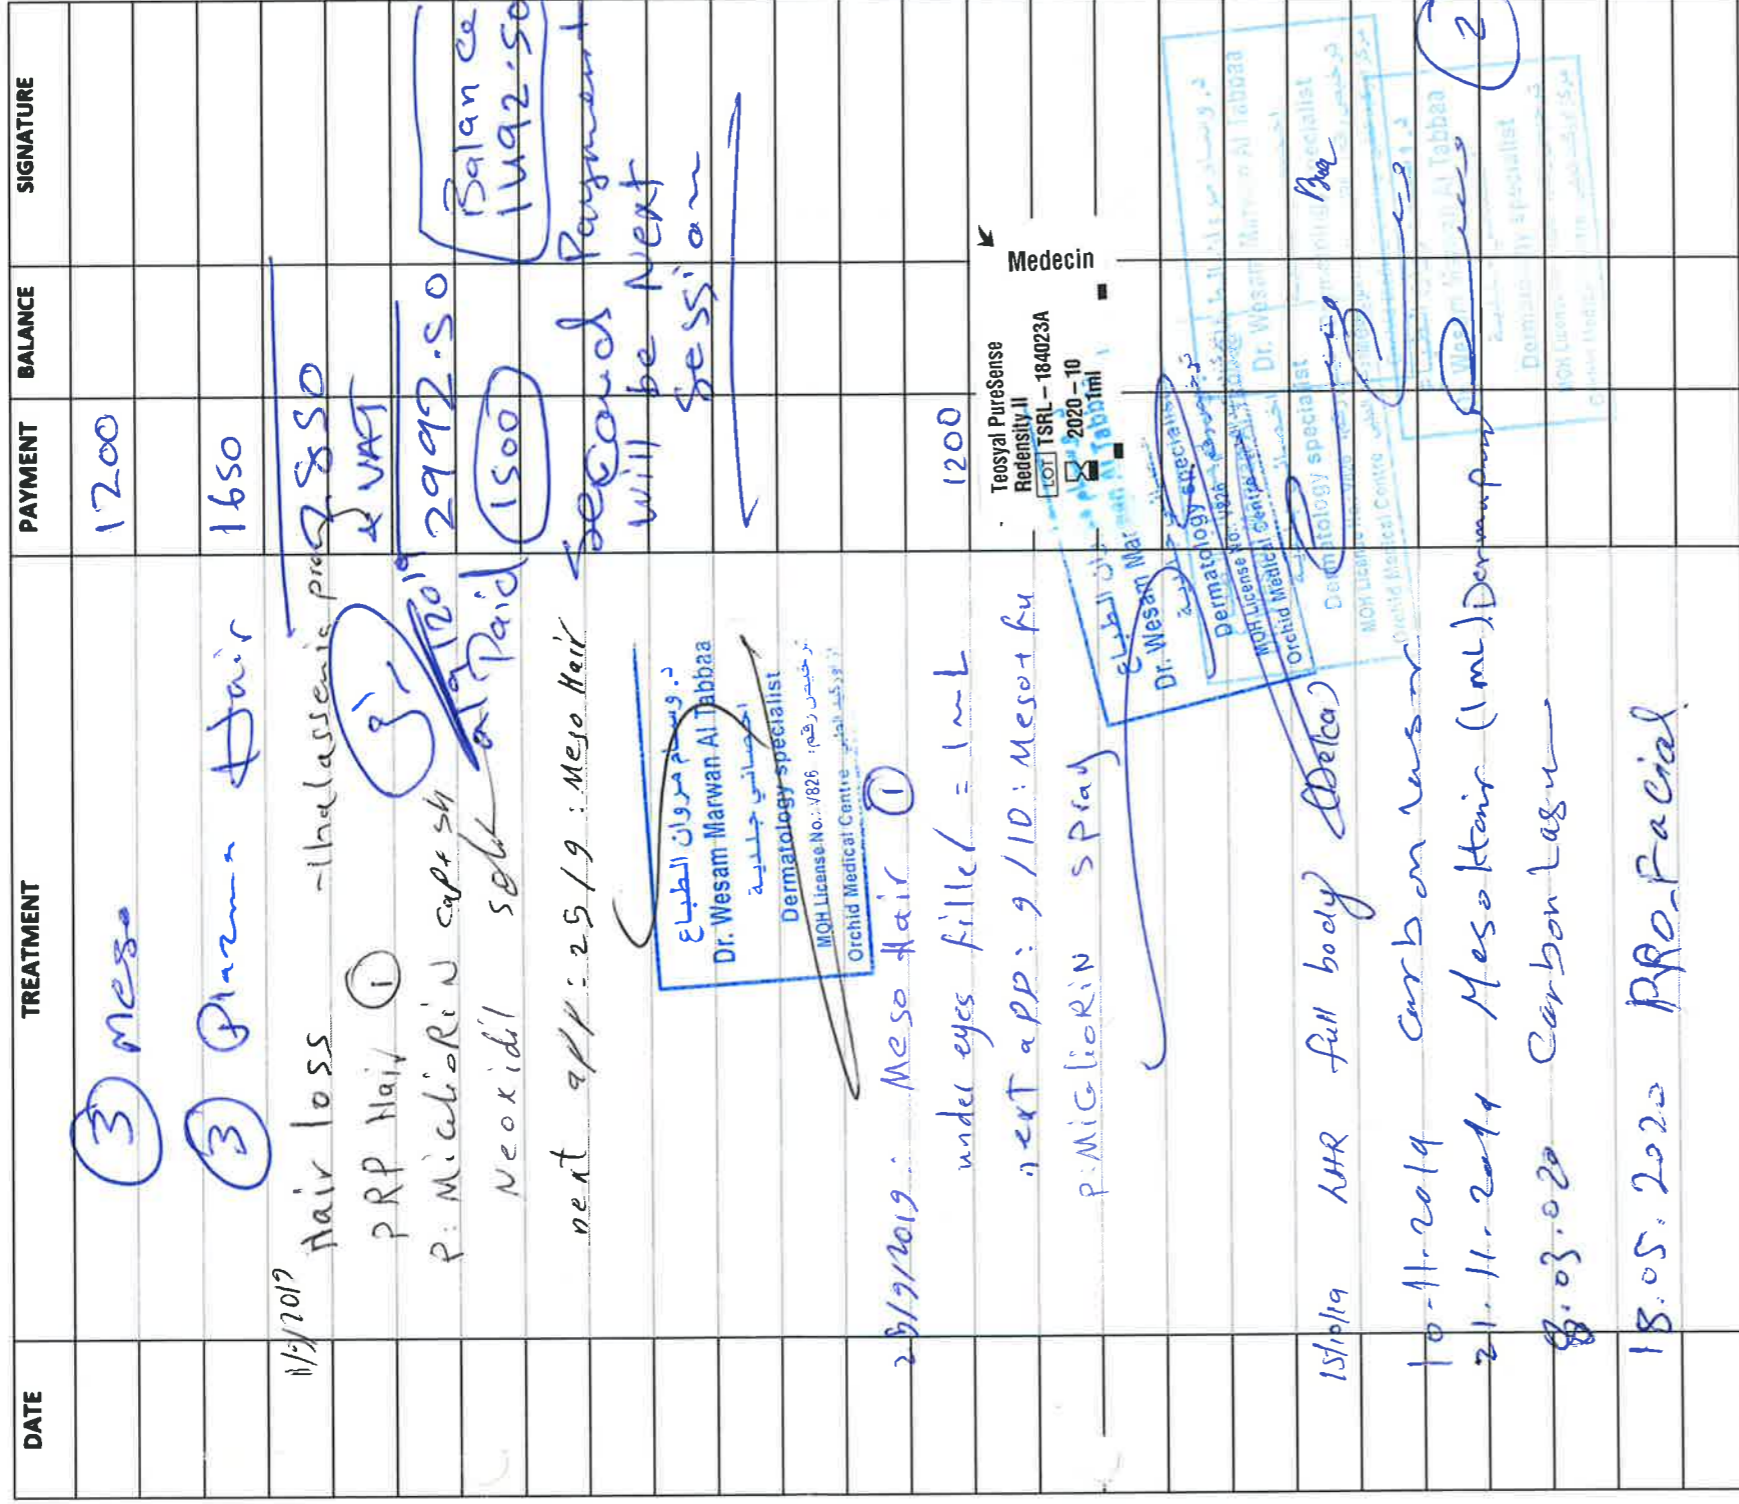 DATE TREATMENT PAYMENT BALANCE SIGNATURE
3 Meso 1200
3 Plasma Hair 1650
Hair loss -thalassemia 2850
PRP Hair 1 + VAT
2992.50
P: MiGlioRiN caps sh
Neoxidil Paid 1500
Balance
1492.50
next app: 25/9: Meso Hair
Second Payment
will be Next
Session
د. وسام مروان الطباع
Dr. Wesam Marwan Al Tabbaa
اخصائي جلدية
Dermatology specialist
MOH License No.: V826 ترخيص رقم:
Orchid Medical Centre
25/9/2019: Meso Hair 1
under eyes filler = 1mL 1200
next app: 9/10: Mesot fu
P: MiGlioRiN spray
Teosyal PureSense
Redensity II
LOT TSRL-184023A
2020-10
1ml
Medecin
Dr. Wesam Mar
Dermatology specialist
MOH License No.: V826
Orchid Medical Centre
15/10/19 LHR full body
10-11-2019 Carbon Laser
21.11.2019 Meso Hair (1mL) Dermapen 2
8.03.020 Carbon Laser
18.05.2020 PRO-Facial